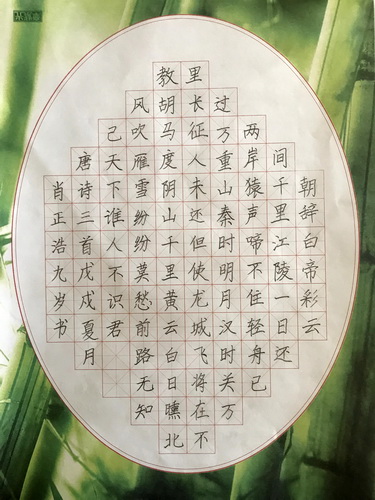 朝辞白帝彩云
间千里江陵一日还
两岸猿声啼不住轻舟已
过万重山秦时明月汉时关万
里长征人未还但使龙城飞将在不
教胡马度阴山千里黄云白日曛北
风吹雁雪纷纷莫愁前路无知
己天下谁人不识君
唐诗三首戊戌夏月
肖正浩九岁书